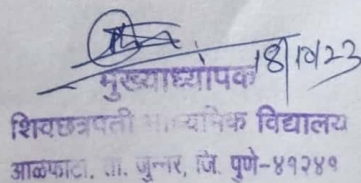 18/10/23
मुख्याध्यापक
शिवछत्रपती माध्यमिक विद्यालय
आळेफाटा, ता. जुन्नर, जि. पुणे-४१२४११